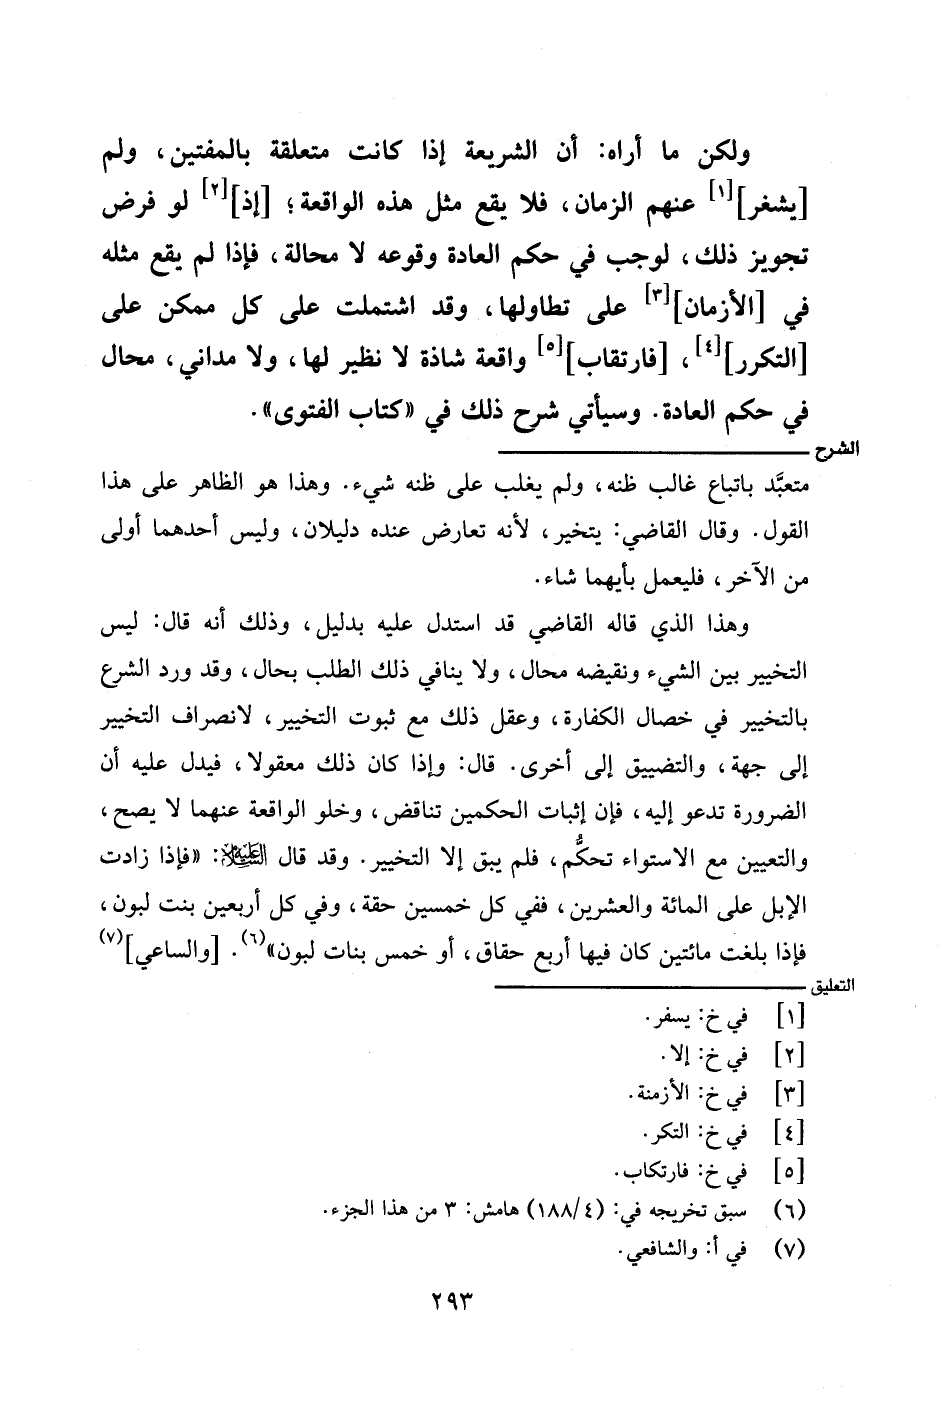 ولكن ما أراه: أن الشريعة إذا كانت متعلقة بالمفتين، ولم
[يشغر][١] عنهم الزمان، فلا يقع مثل هذه الواقعة؛ [إذ][٢] لو فرض
تجويز ذلك، لوجب في حكم العادة وقوعه لا محالة، فإذا لم يقع مثله
في [الأزمان][٣] على تطاولها، وقد اشتملت على كل ممكن على
[التكرر][٤]، [فارتقاب][٥] واقعة شاذة لا نظير لها، ولا مداني، محال
في حكم العادة. وسيأتي شرح ذلك في «كتاب الفتوى».
الشرح
متعبَّد باتباع غالب ظنه، ولم يغلب على ظنه شيء. وهذا هو الظاهر على هذا
القول. وقال القاضي: يتخير، لأنه تعارض عنده دليلان، وليس أحدهما أولى
من الآخر، فليعمل بأيهما شاء.
وهذا الذي قاله القاضي قد استدل عليه بدليل، وذلك أنه قال: ليس
التخيير بين الشيء ونقيضه محال، ولا ينافي ذلك الطلب بحال، وقد ورد الشرع
بالتخيير في خصال الكفارة، وعقل ذلك مع ثبوت التخيير، لانصراف التخيير
إلى جهة، والتضييق إلى أخرى. قال: وإذا كان ذلك معقولا، فيدل عليه أن
الضرورة تدعو إليه، فإن إثبات الحكمين تناقض، وخلو الواقعة عنهما لا يصح،
والتعيين مع الاستواء تحكُّم، فلم يبق إلا التخيير. وقد قال عليه السلام: «فإذا زادت
الإبل على المائة والعشرين، ففي كل خمسين حقة، وفي كل أربعين بنت لبون،
فإذا بلغت مائتين كان فيها أربع حقاق، أو خمس بنات لبون»(٦). [والساعي](٧)
التعليق
[١] في خ: يسفر.
[٢] في خ: إلا.
[٣] في خ: الأزمنة.
[٤] في خ: التكر.
[٥] في خ: فارتكاب.
(٦) سبق تخريجه في: (٤/١٨٨) هامش: ٣ من هذا الجزء.
(٧) في أ: والشافعي.
٢٩٣